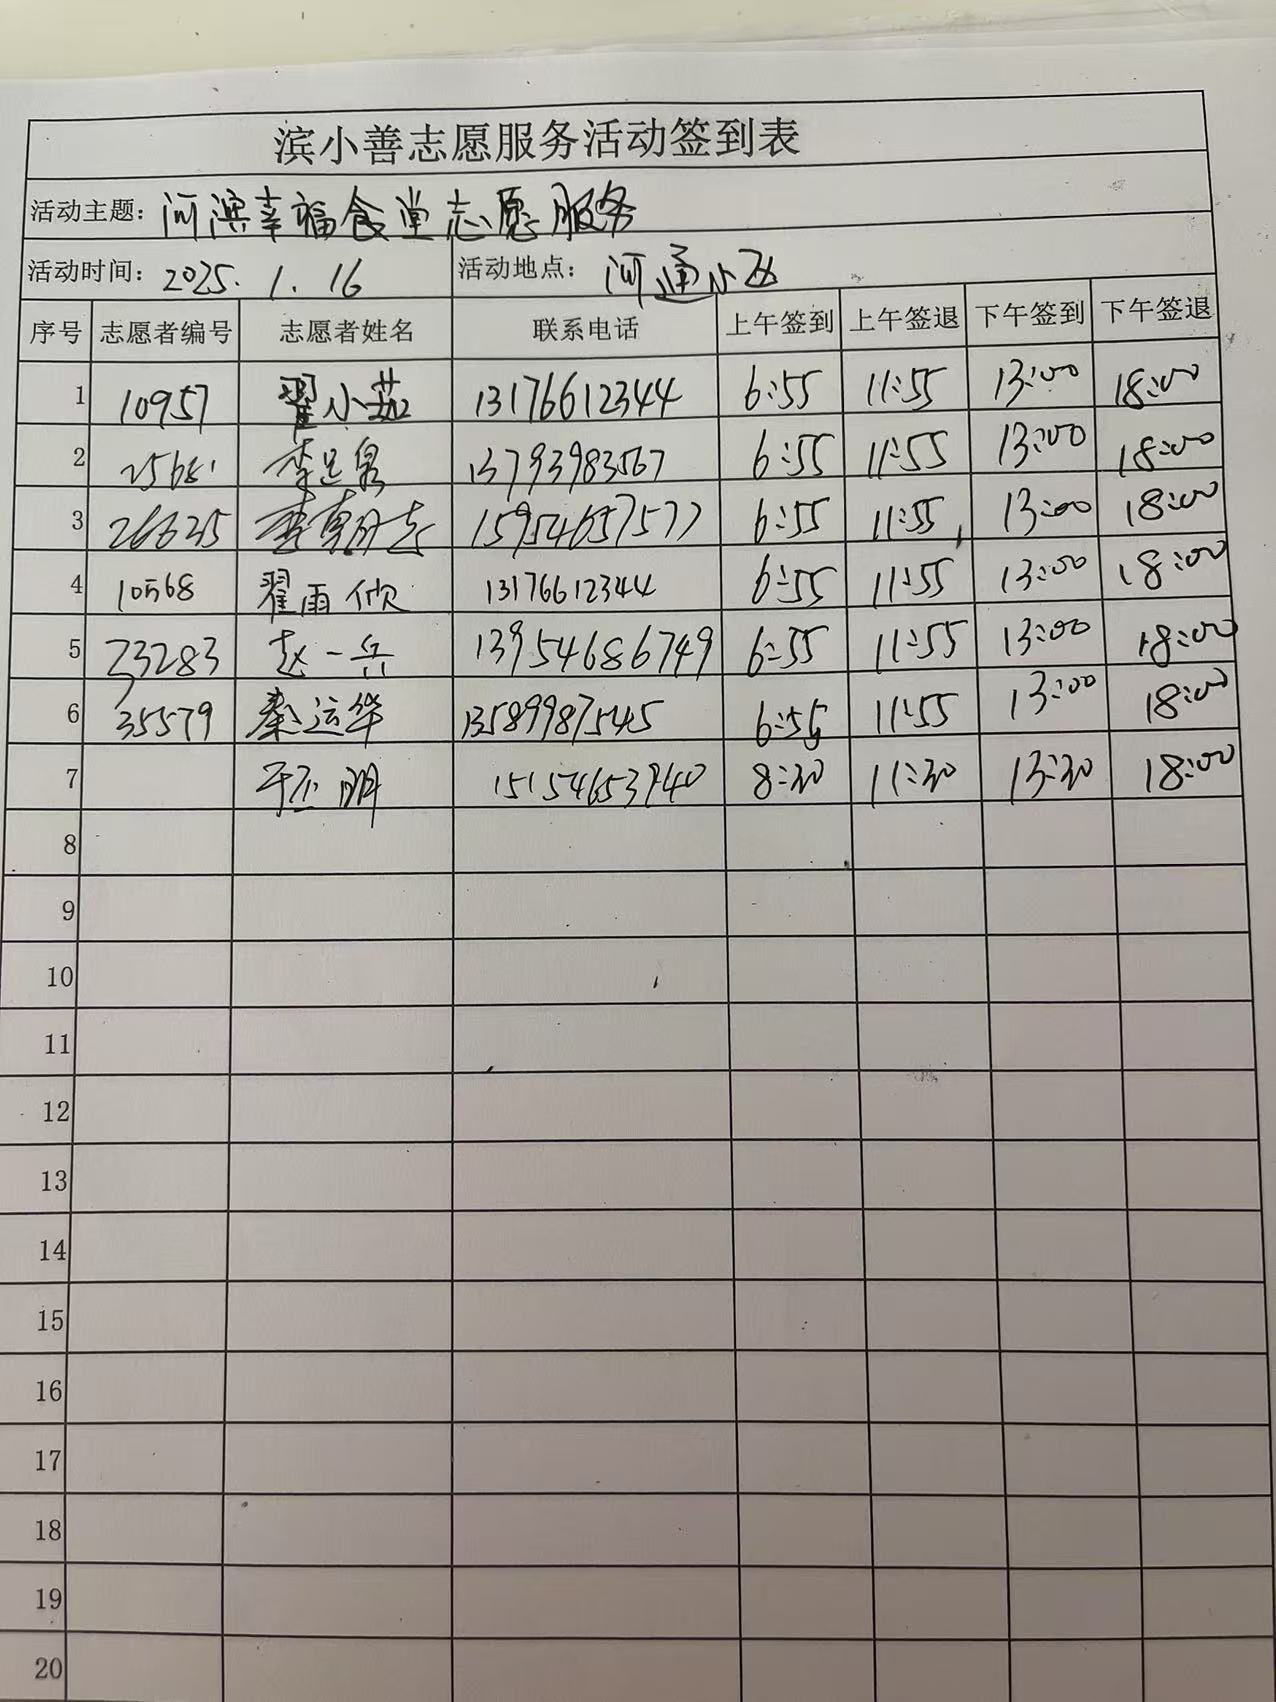 滨小善志愿服务活动签到表
活动主题: 河滨幸福食堂志愿服务
活动时间: 2025.1.16 活动地点: 河通小区
序号 志愿者编号 志愿者姓名 联系电话 上午签到 上午签退 下午签到 下午签退
1 10957 翟小茹 13176612344 6:55 11:55 13:00 18:00
2 李足泉 13793983567 6:55 11:55 13:00 18:00
3 26625 李 15954657577 6:55 11:55 13:00 18:00
4 10568 翟雨欣 13176612344 6:55 11:55 13:00 18:00
5 23283 赵一兵 13954686749 6:55 11:55 13:00 18:00
6 35579 秦运华 13589987545 6:55 11:55 13:00 18:00
7 于丕明 15154653940 8:30 11:30 13:30 18:00
8
9
10
11
12
13
14
15
16
17
18
19
20